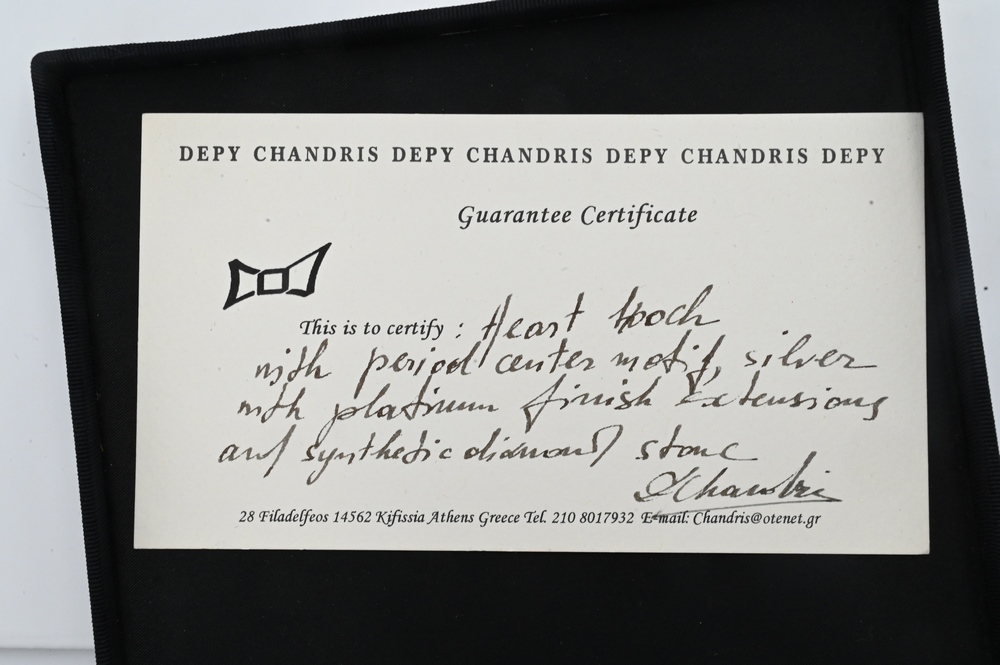 DEPY CHANDRIS DEPY CHANDRIS DEPY CHANDRIS DEPY
Guarantee Certificate
This is to certify : Heart brooch
with period center motif, silver
with platinum finish extensions
and synthetic diamond stone
DChandris
28 Filadelfeos 14562 Kifissia Athens Greece Tel. 210 8017932 E-mail: Chandris@otenet.gr